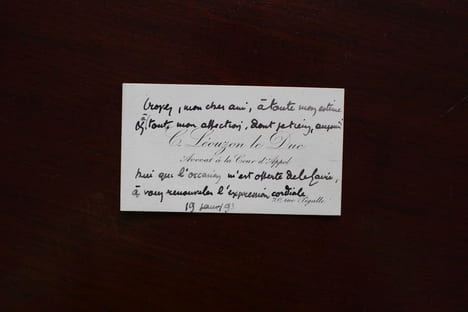 Croyez, mon cher ami, à toute mon estime
& à toute mon affection, dont je tiens, aujour
C. Léouzon le Duc
Avocat à la Cour d'Appel
hui que l'occasion m'est offerte de le faire,
à vous renouveler l'expression cordiale
rue Pigalle
19